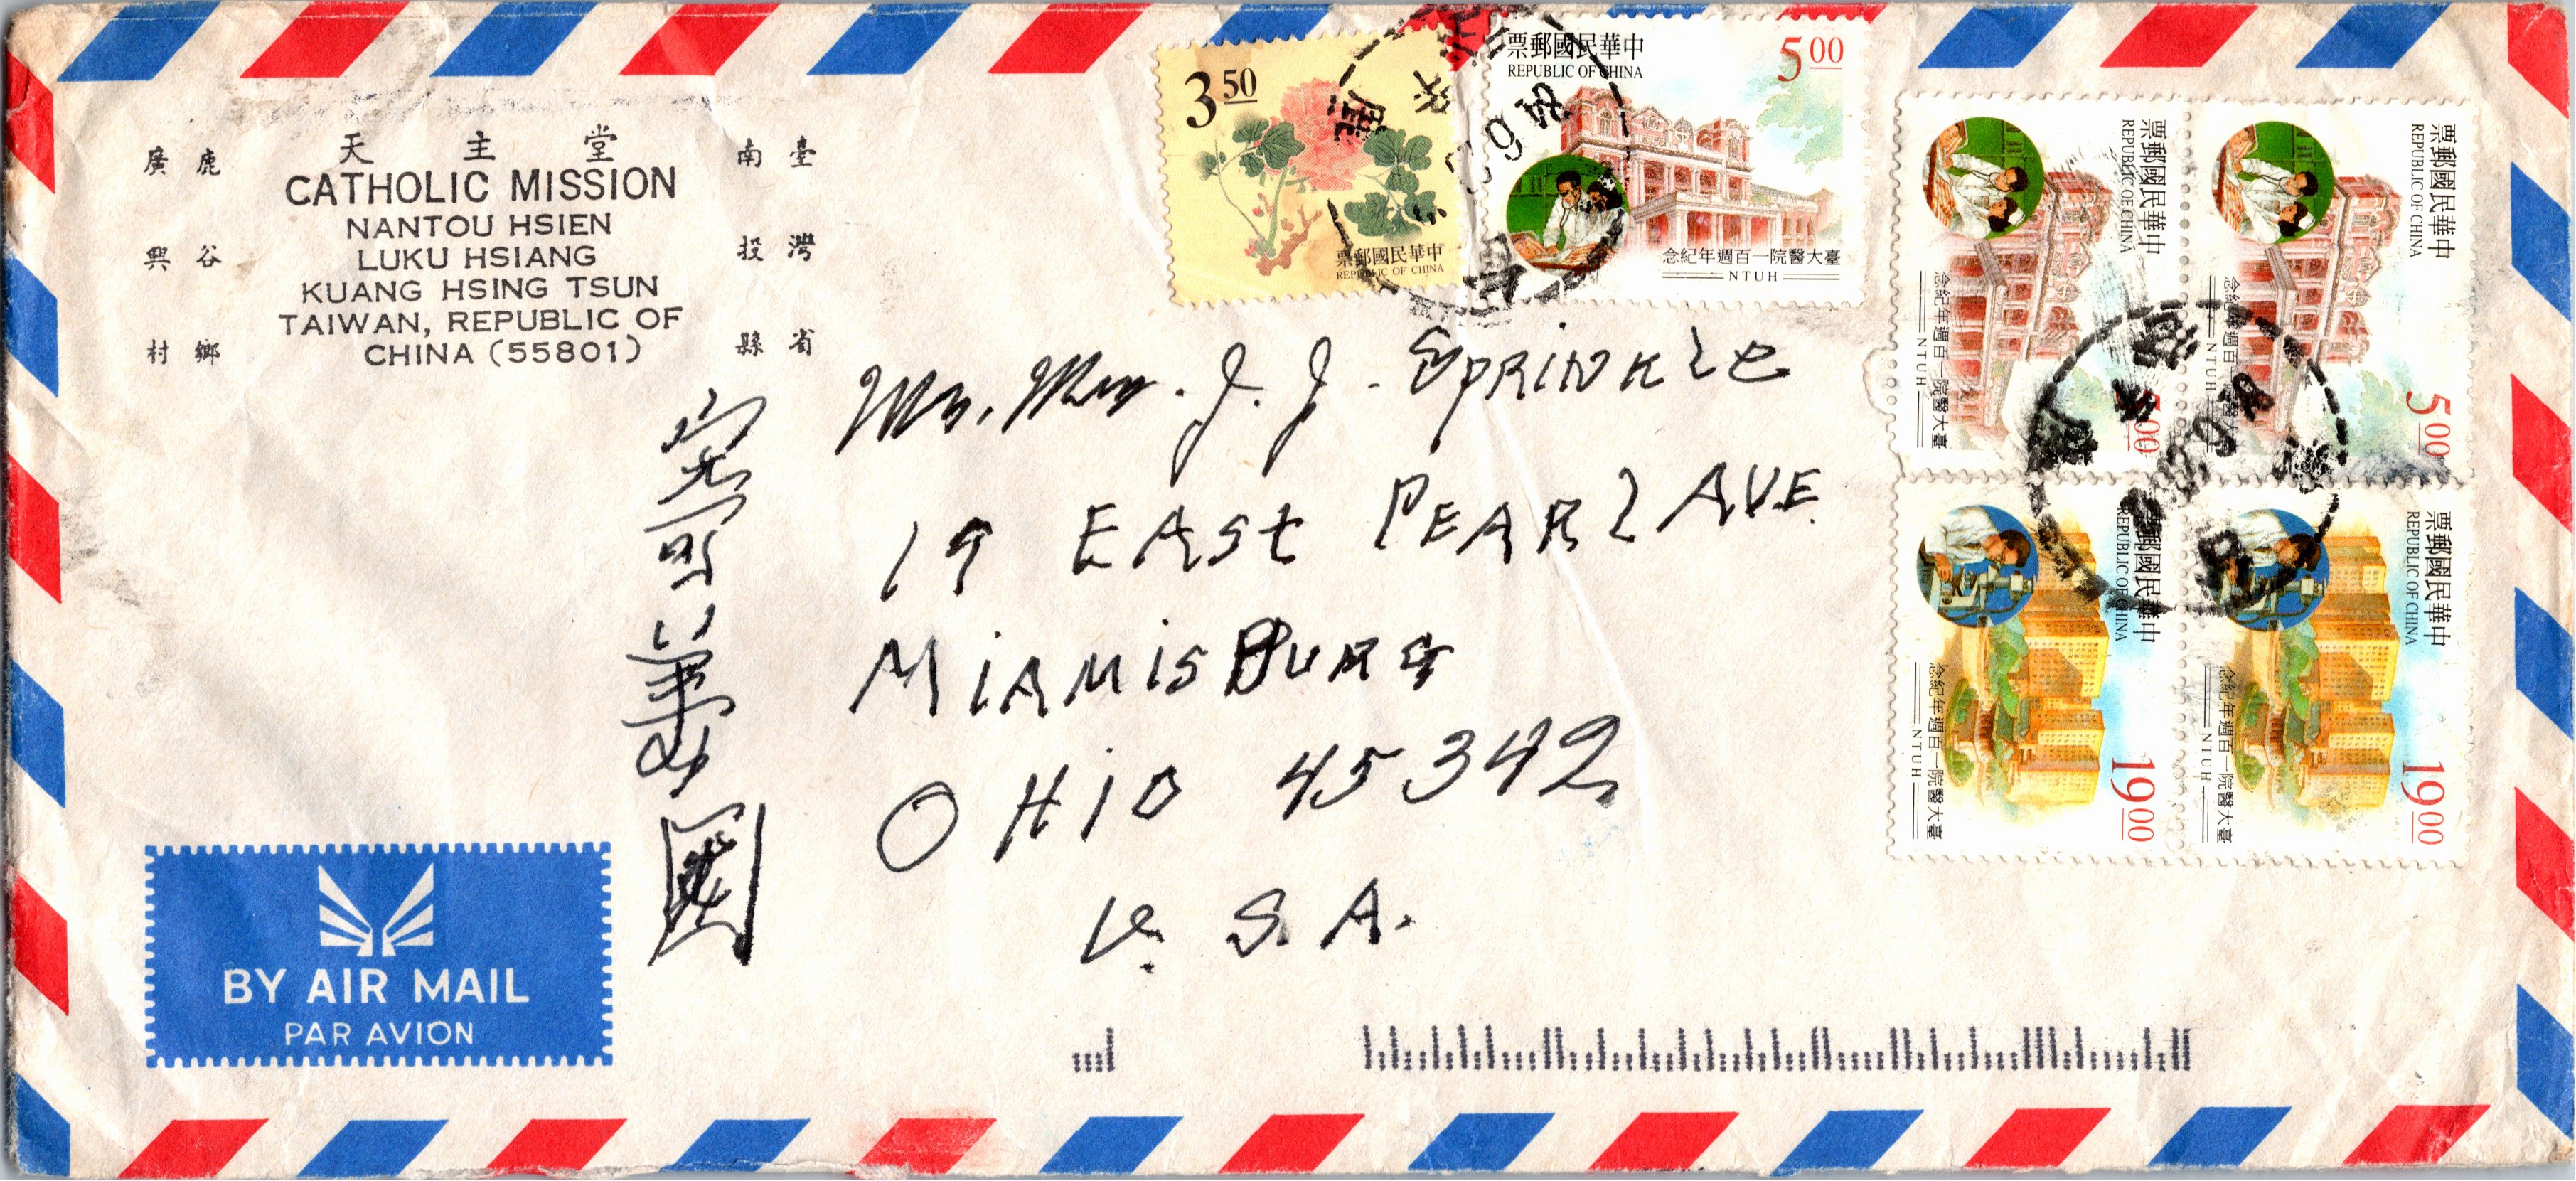 天主堂
CATHOLIC MISSION
NANTOU HSIEN
LUKU HSIANG
KUANG HSING TSUN
TAIWAN, REPUBLIC OF
CHINA (55801)
臺灣省
南投縣
鹿谷鄉
廣興村
3 50
票郵國民華中
REPUBLIC OF CHINA
票郵國民華中
REPUBLIC OF CHINA
5 00
念紀年週百一院醫大臺
NTUH
84 6
票郵國民華中
REPUBLIC OF CHINA
念紀年週百一院醫大臺
NTUH
5 00
票郵國民華中
REPUBLIC OF CHINA
念紀年週百一院醫大臺
NTUH
5 00
票郵國民華中
REPUBLIC OF CHINA
念紀年週百一院醫大臺
NTUH
19 00
票郵國民華中
REPUBLIC OF CHINA
念紀年週百一院醫大臺
NTUH
19 00
Mr. Mrs. J. J. SPRINKLE
19 EAST PEARL AVE.
MIAMISBURG
OHIO 45342
U. S. A.
寄美國
BY AIR MAIL
PAR AVION